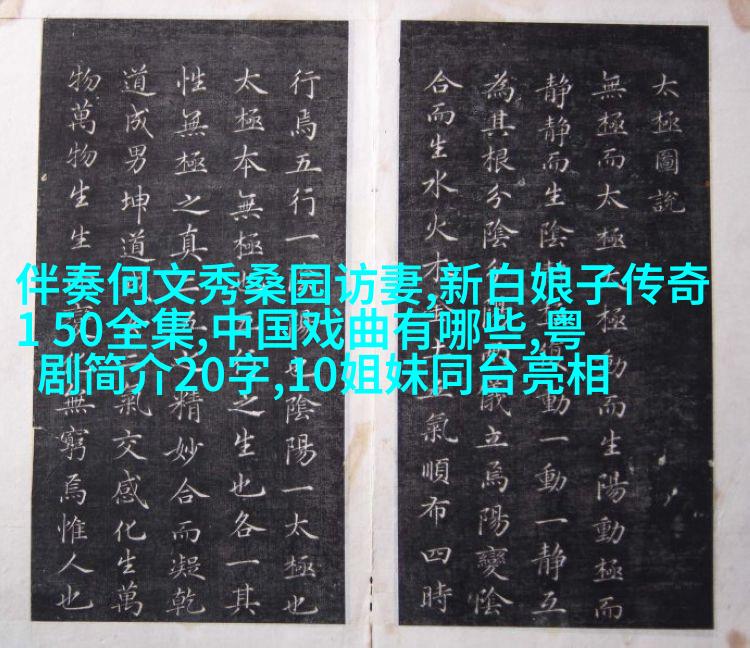 太極圖說
無極而太極極動而生陽動極而
静静而生陰動一動一静互
為其根分陰立焉陽變陰
合而生水火氣順布四時
行焉五行一陽也陰陽一太極也
太極本無極之生也各一其
性無極之真精妙合而凝乾
道成男坤道氣交感化生萬
物萬物生生無窮焉惟人也
伴奏何文秀桑园访妻,新白娘子传奇
1 50全集,中国戏曲有哪些,粤
剧简介20字,10姐妹同台亮相